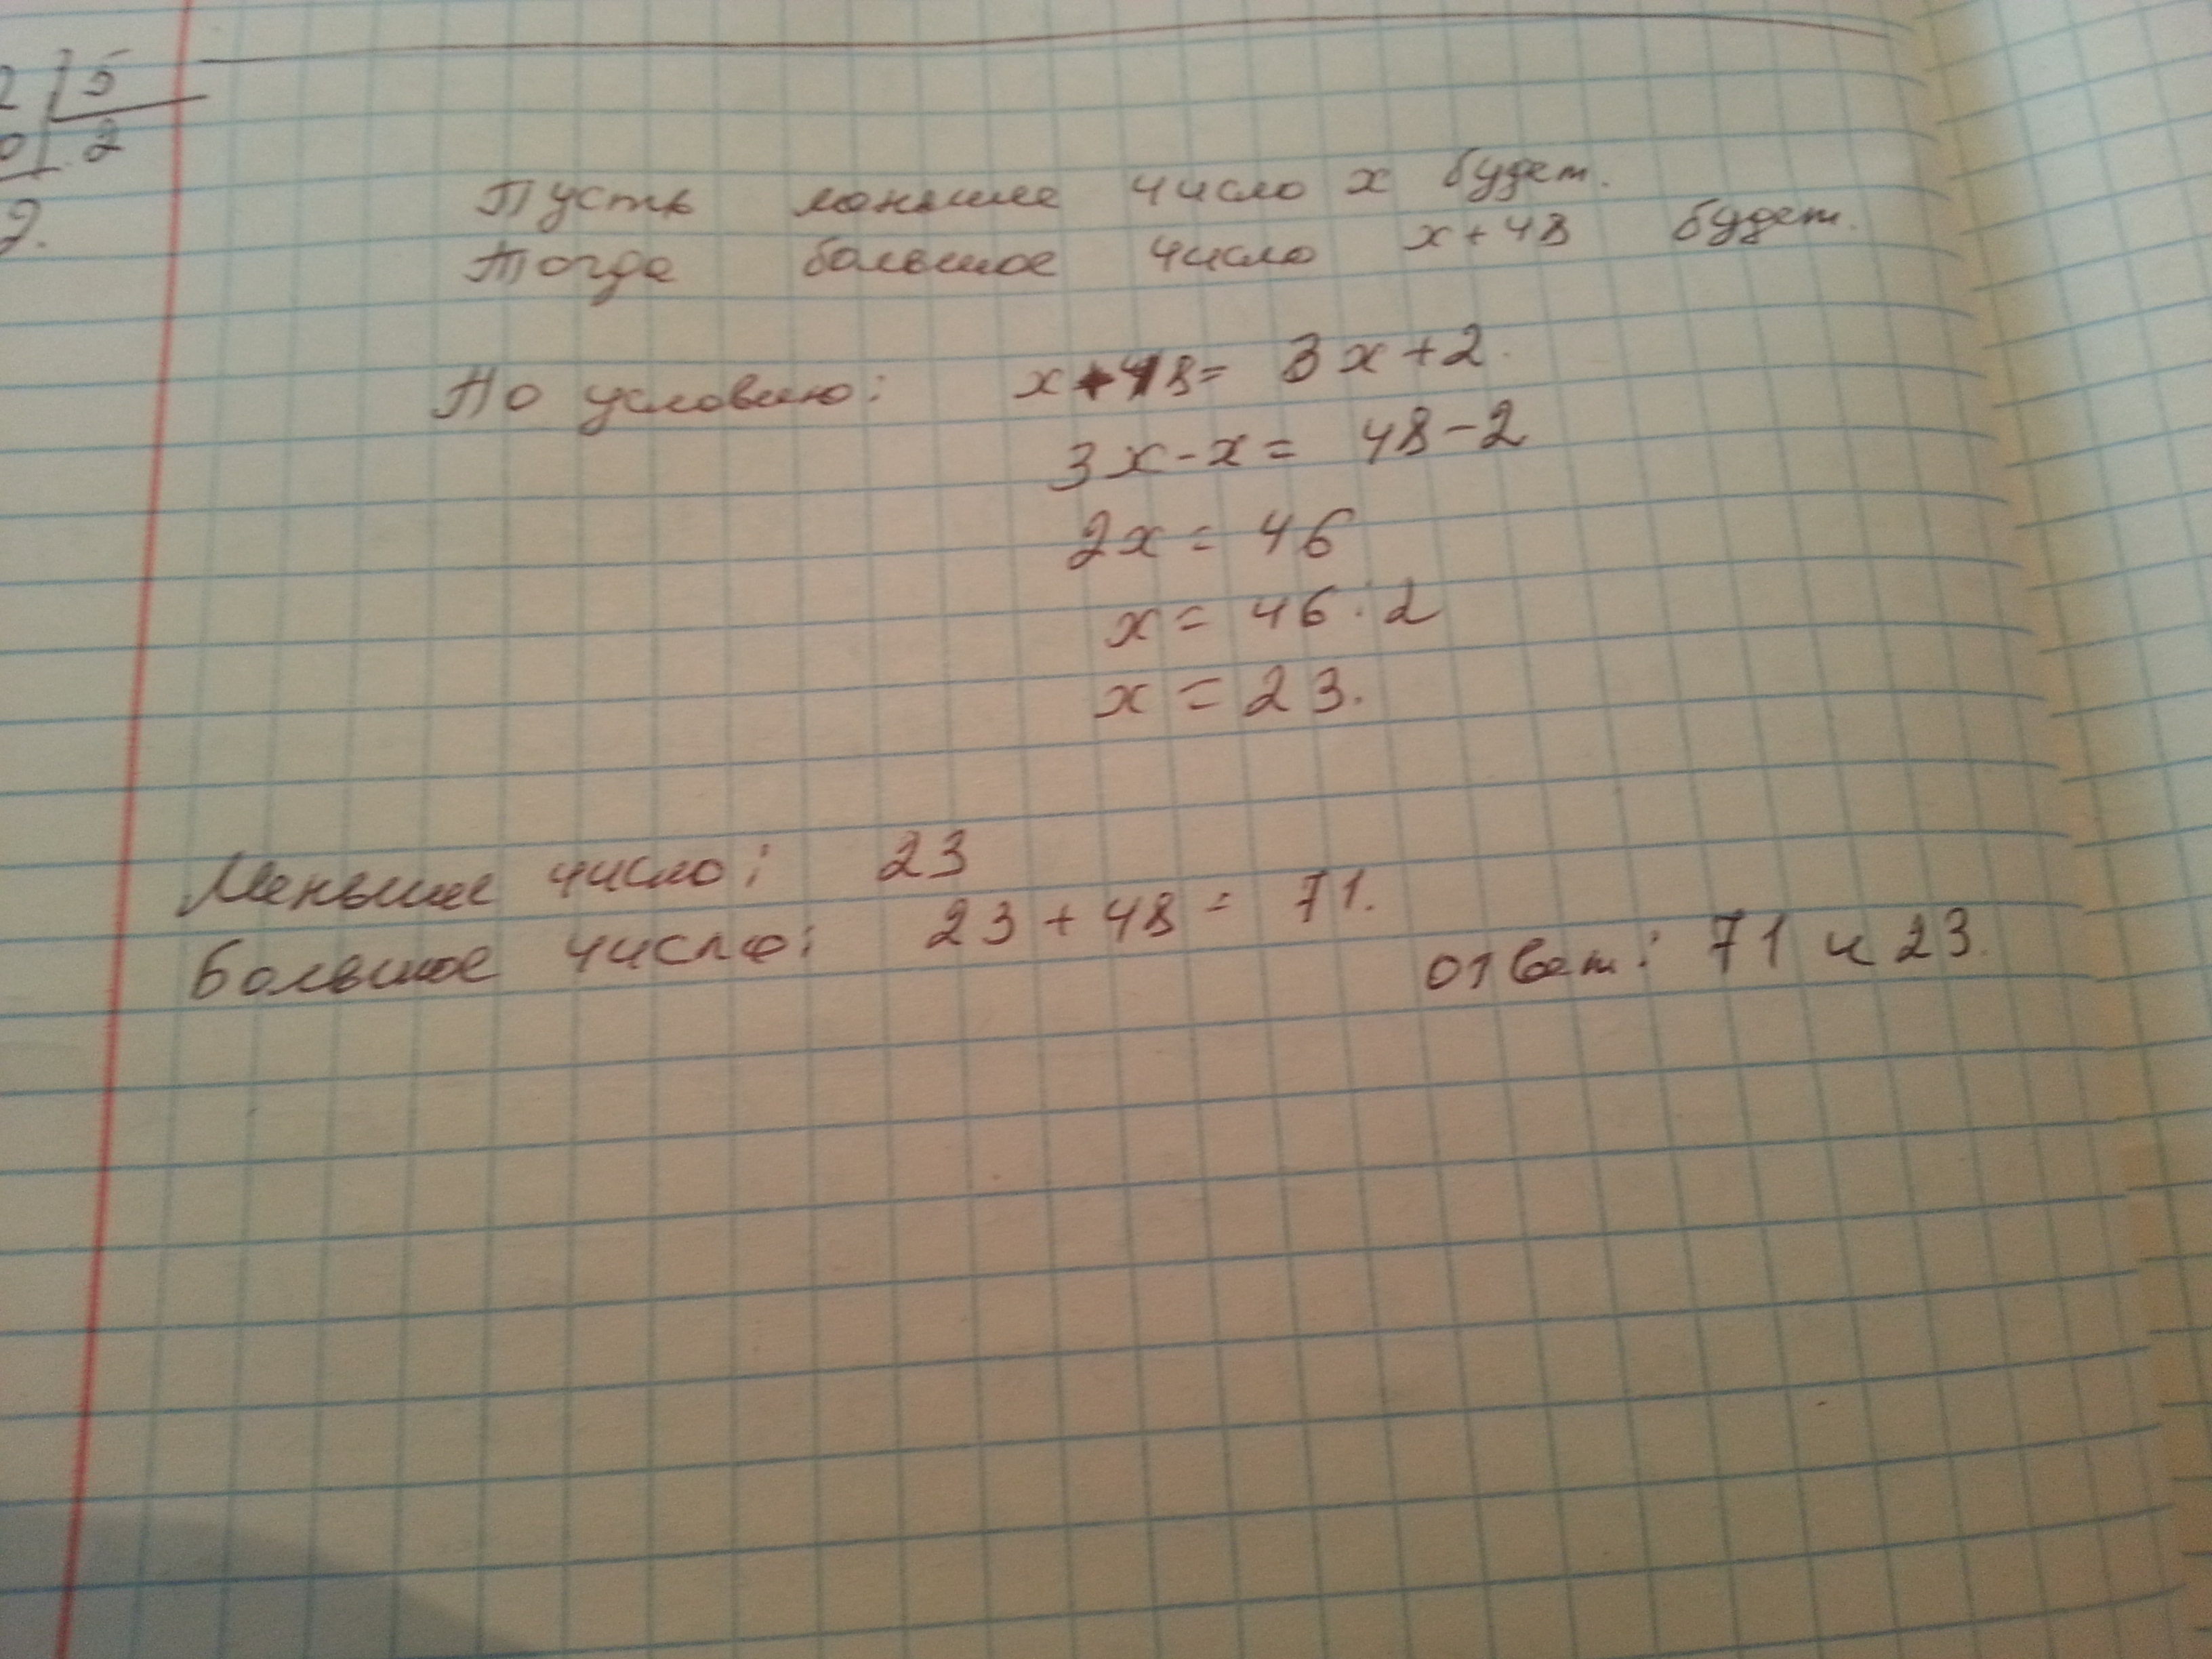 2 | 5
0 | 2
2.
Пусть меньшее число x будет.
Тогда большое число x + 48 будет.
По условию: x + 48 = 3x + 2.
3x - x = 48 - 2
2x = 46
x = 46 : 2
x = 23.
Меньшее число: 23
Большое число: 23 + 48 = 71.
ответ: 71 и 23.